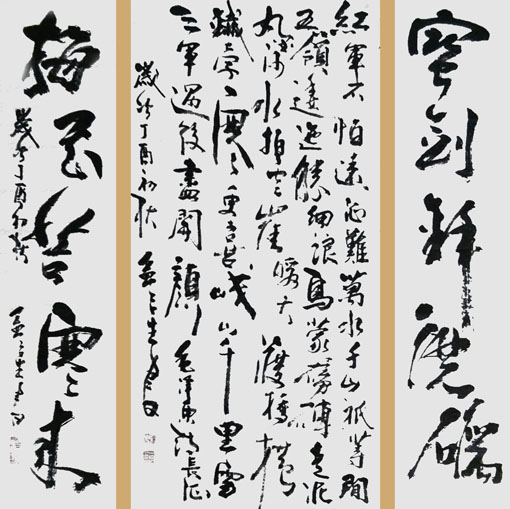 寶劍鋒磨礪
紅軍不怕遠征難萬水千山祇等閒
五嶺逶迤騰細浪烏蒙磅礴走泥
丸金沙水拍雲崖暖大渡橋橫
鐵索寒更喜岷山千里雪
三軍過後盡開顏 毛澤東詩長征
歲於丁酉初秋
梅花苦寒來
歲於丁酉初秋